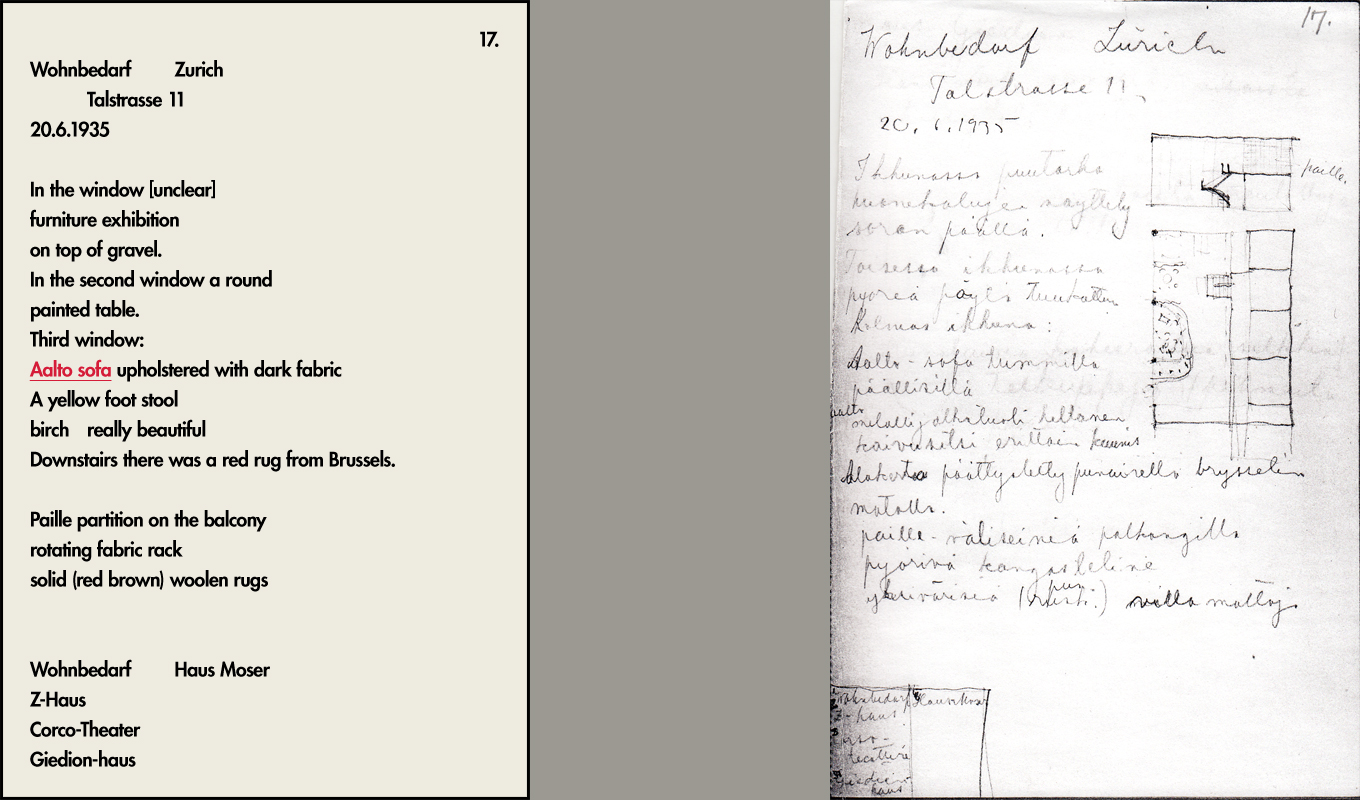 17.
Wohnbedarf Zurich
Talstrasse 11
20.6.1935
In the window [unclear]
furniture exhibition
on top of gravel.
In the second window a round
painted table.
Third window:
Aalto sofa upholstered with dark fabric
A yellow foot stool
birch really beautiful
Downstairs there was a red rug from Brussels.
Paille partition on the balcony
rotating fabric rack
solid (red brown) woolen rugs
Wohnbedarf Haus Moser
Z-Haus
Corco-Theater
Giedion-haus
17.
Wohnbedarf Zürich
Talstrasse 11.
20.6.1935
Ikkunassa puutarha
huonekalujen näyttely
soran päällä.
paille.
Toisessa ikkunassa
pyöreä pöytä
Kolmas ikkuna:
Aalto-sofa tummilla
päällisillä
aalto
keltanen
koivusitsi erittäin kaunis
Alakerta päällystetty punaisella brysselin
matolla.
paille-väliseiniä parkongilla
pyörivä kangasteline
yksivärisiä villa mattoja
Wohnbedarf
Z-haus
haus